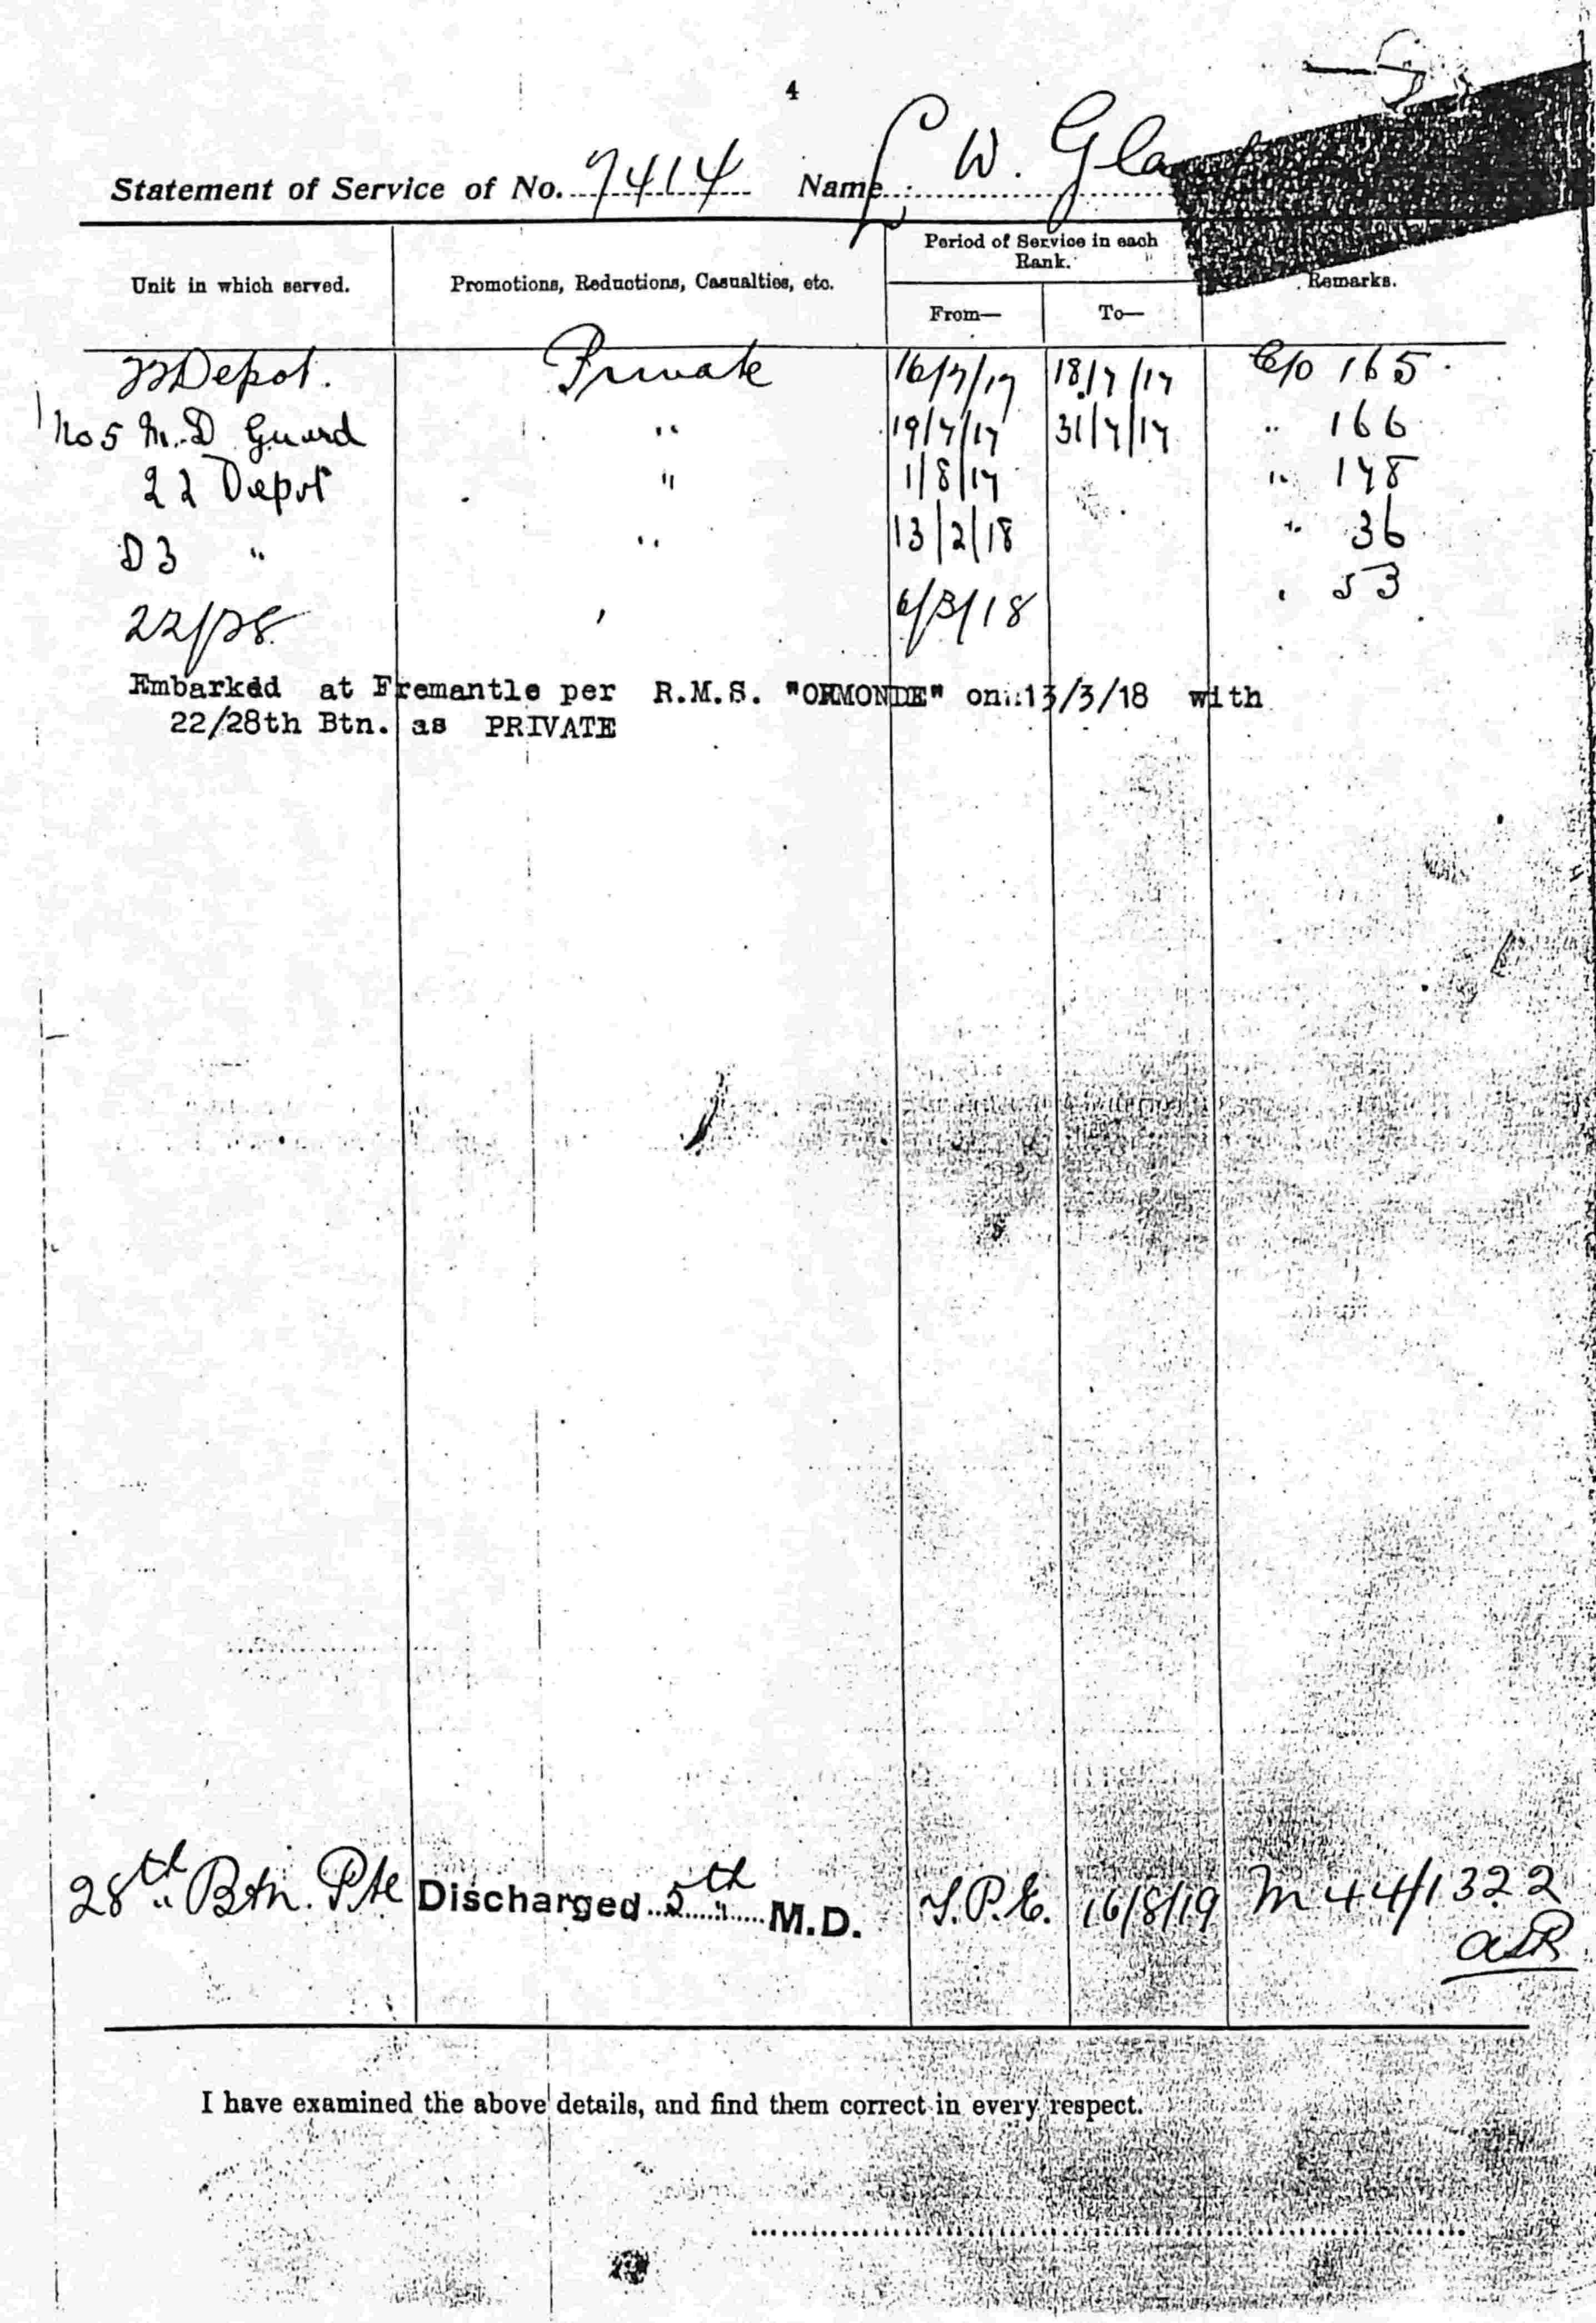 4
Statement of Service of No. 7414 Name: W. Gla
Unit in which served. Promotions, Reductions, Casualties, etc. Period of Service in each Rank. From— To— Remarks.
Depot. Private 16/7/17 18/7/17 C/O 165
No 5 M.D Guard " 19/7/17 31/7/17 " 166
22 Depot " 1/8/17 " 178
D3 " " 13/2/18 " 36
22/28 6/3/18 53
Embarked at Fremantle per R.M.S. "ORMONDE" on 13/3/18 with
22/28th Btn. as PRIVATE
28th Btn. Pte Discharged 5th M.D. T.P.E. 16/8/19 M 44/1322
I have examined the above details, and find them correct in every respect.